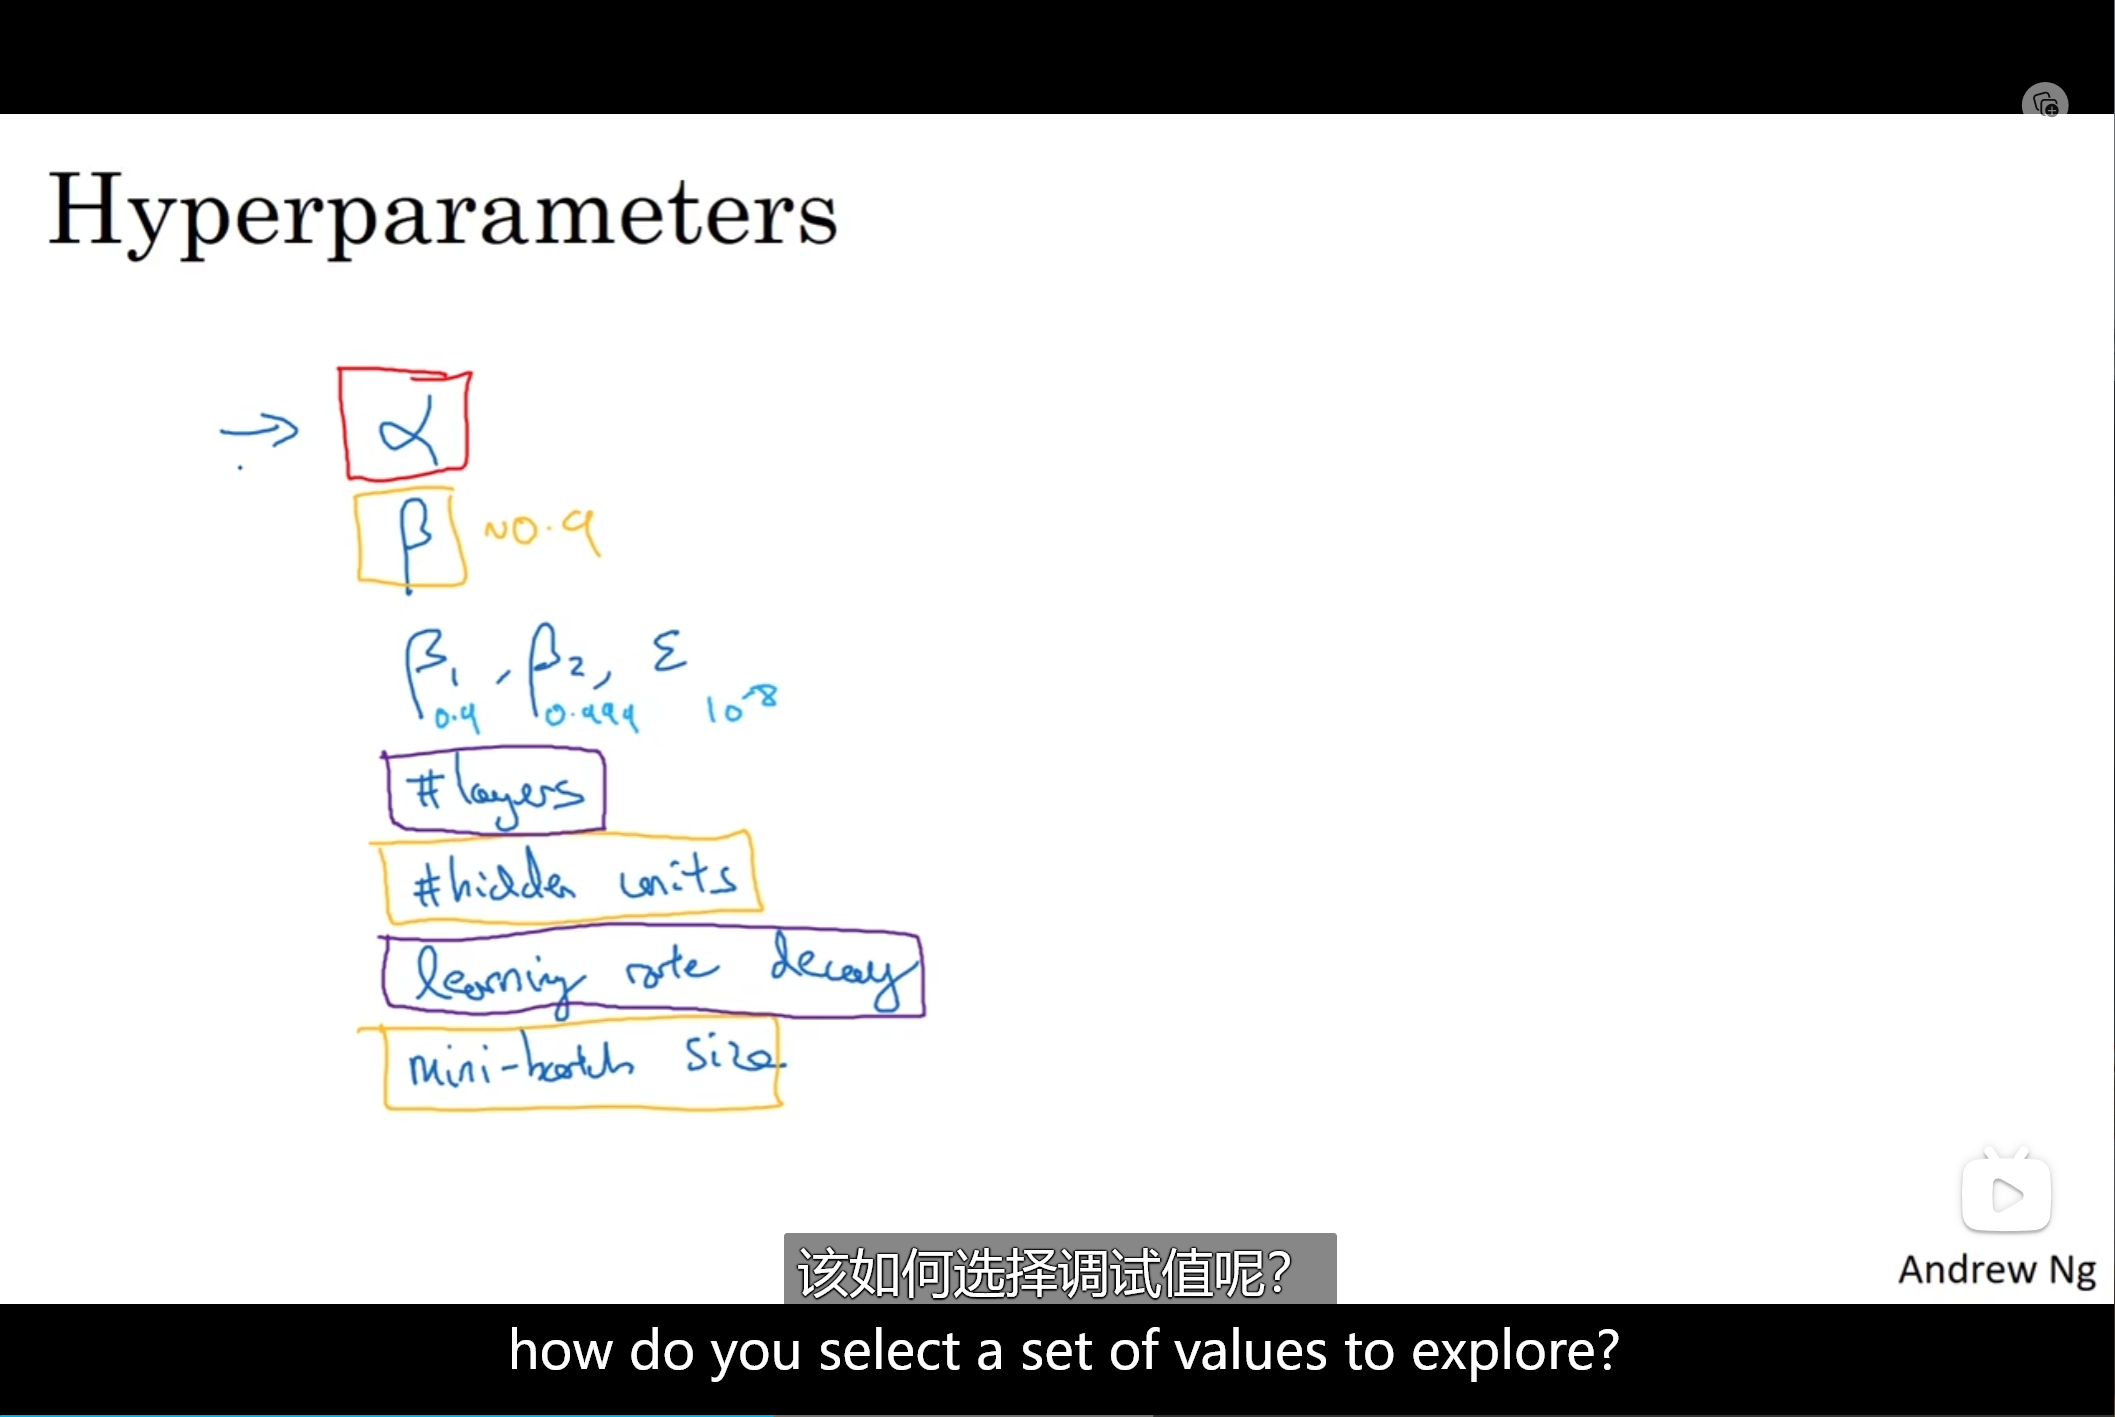 Hyperparameters
→ α
β ~0.9
β₁, β₂, ε
0.9 0.999 10⁻⁸
#layers
#hidden units
learning rate decay
mini-batch size
该如何选择调试值呢？
Andrew Ng
how do you select a set of values to explore?